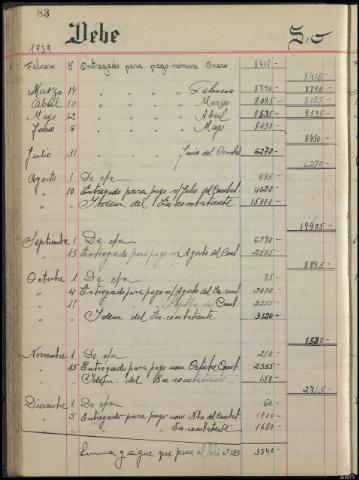 83
1939
Debe
Febrero 8 Entregado para pago nómina Enero 8415-
8415-
Marzo 14 " " " " Febrero 8740- 8740-
Abril 10 " " " " Marzo 8085- 8085-
Mayo 12 " " " " Abril 8595- 8595-
Junio 6 " " " " Mayo 8430-
8430-
Julio 31 Junio del Combat 6270-
6270-
Agosto 1 De cpa 885-
" 10 Entregado para pago n/ Julio del Combat 4020-
" Idem del Ex-combatiente 15000-
19905-
Septiembre 1 De cpa 6390-
" 15 Entregado para pago n/ Agosto del Comb. 2505-
8895-
Octubre 1 De cpa 75-
" 4 Entregado para pago n/ Agosto del Ex-comb
" 11 del Comb
" Idem del Ex-combatiente 3120-
8580-
Noviembre 1 De cpa 210-
" 15 Entregado para pago nom. Octubre, Comb. 2355-
" Idem del Ex combatiente 150-
2715-
Diciembre 1 De cpa 60-
" 5 Entregado para pago nom. Nbre del Combat 1800-
" " Ex-combatiente 1680-
Suma y sigue que pasa al folio nº 183 3540-